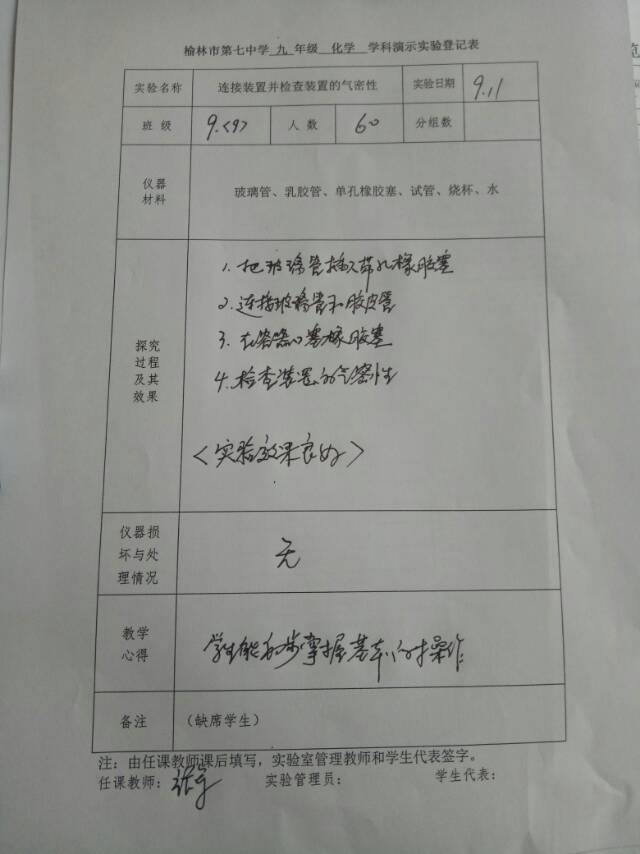 榆林市第七中学 九 年级 化学 学科演示实验登记表
实验名称 连接装置并检查装置的气密性 实验日期 9.11
班 级 9.<9> 人 数 60 分组数
仪器
材料
玻璃管、乳胶管、单孔橡胶塞、试管、烧杯、水
探究
过程
及其
效果
1. 把玻璃管插入带孔橡胶塞
2. 连接玻璃管和胶皮管
3. 在容器口塞橡胶塞
4. 检查装置的气密性
<实验效果良好>
仪器损
坏与处
理情况
无
教学
心得
学生能初步掌握基本的操作
备注 (缺席学生)
注:由任课教师课后填写,实验室管理教师和学生代表签字。
任课教师: 实验管理员: 学生代表: